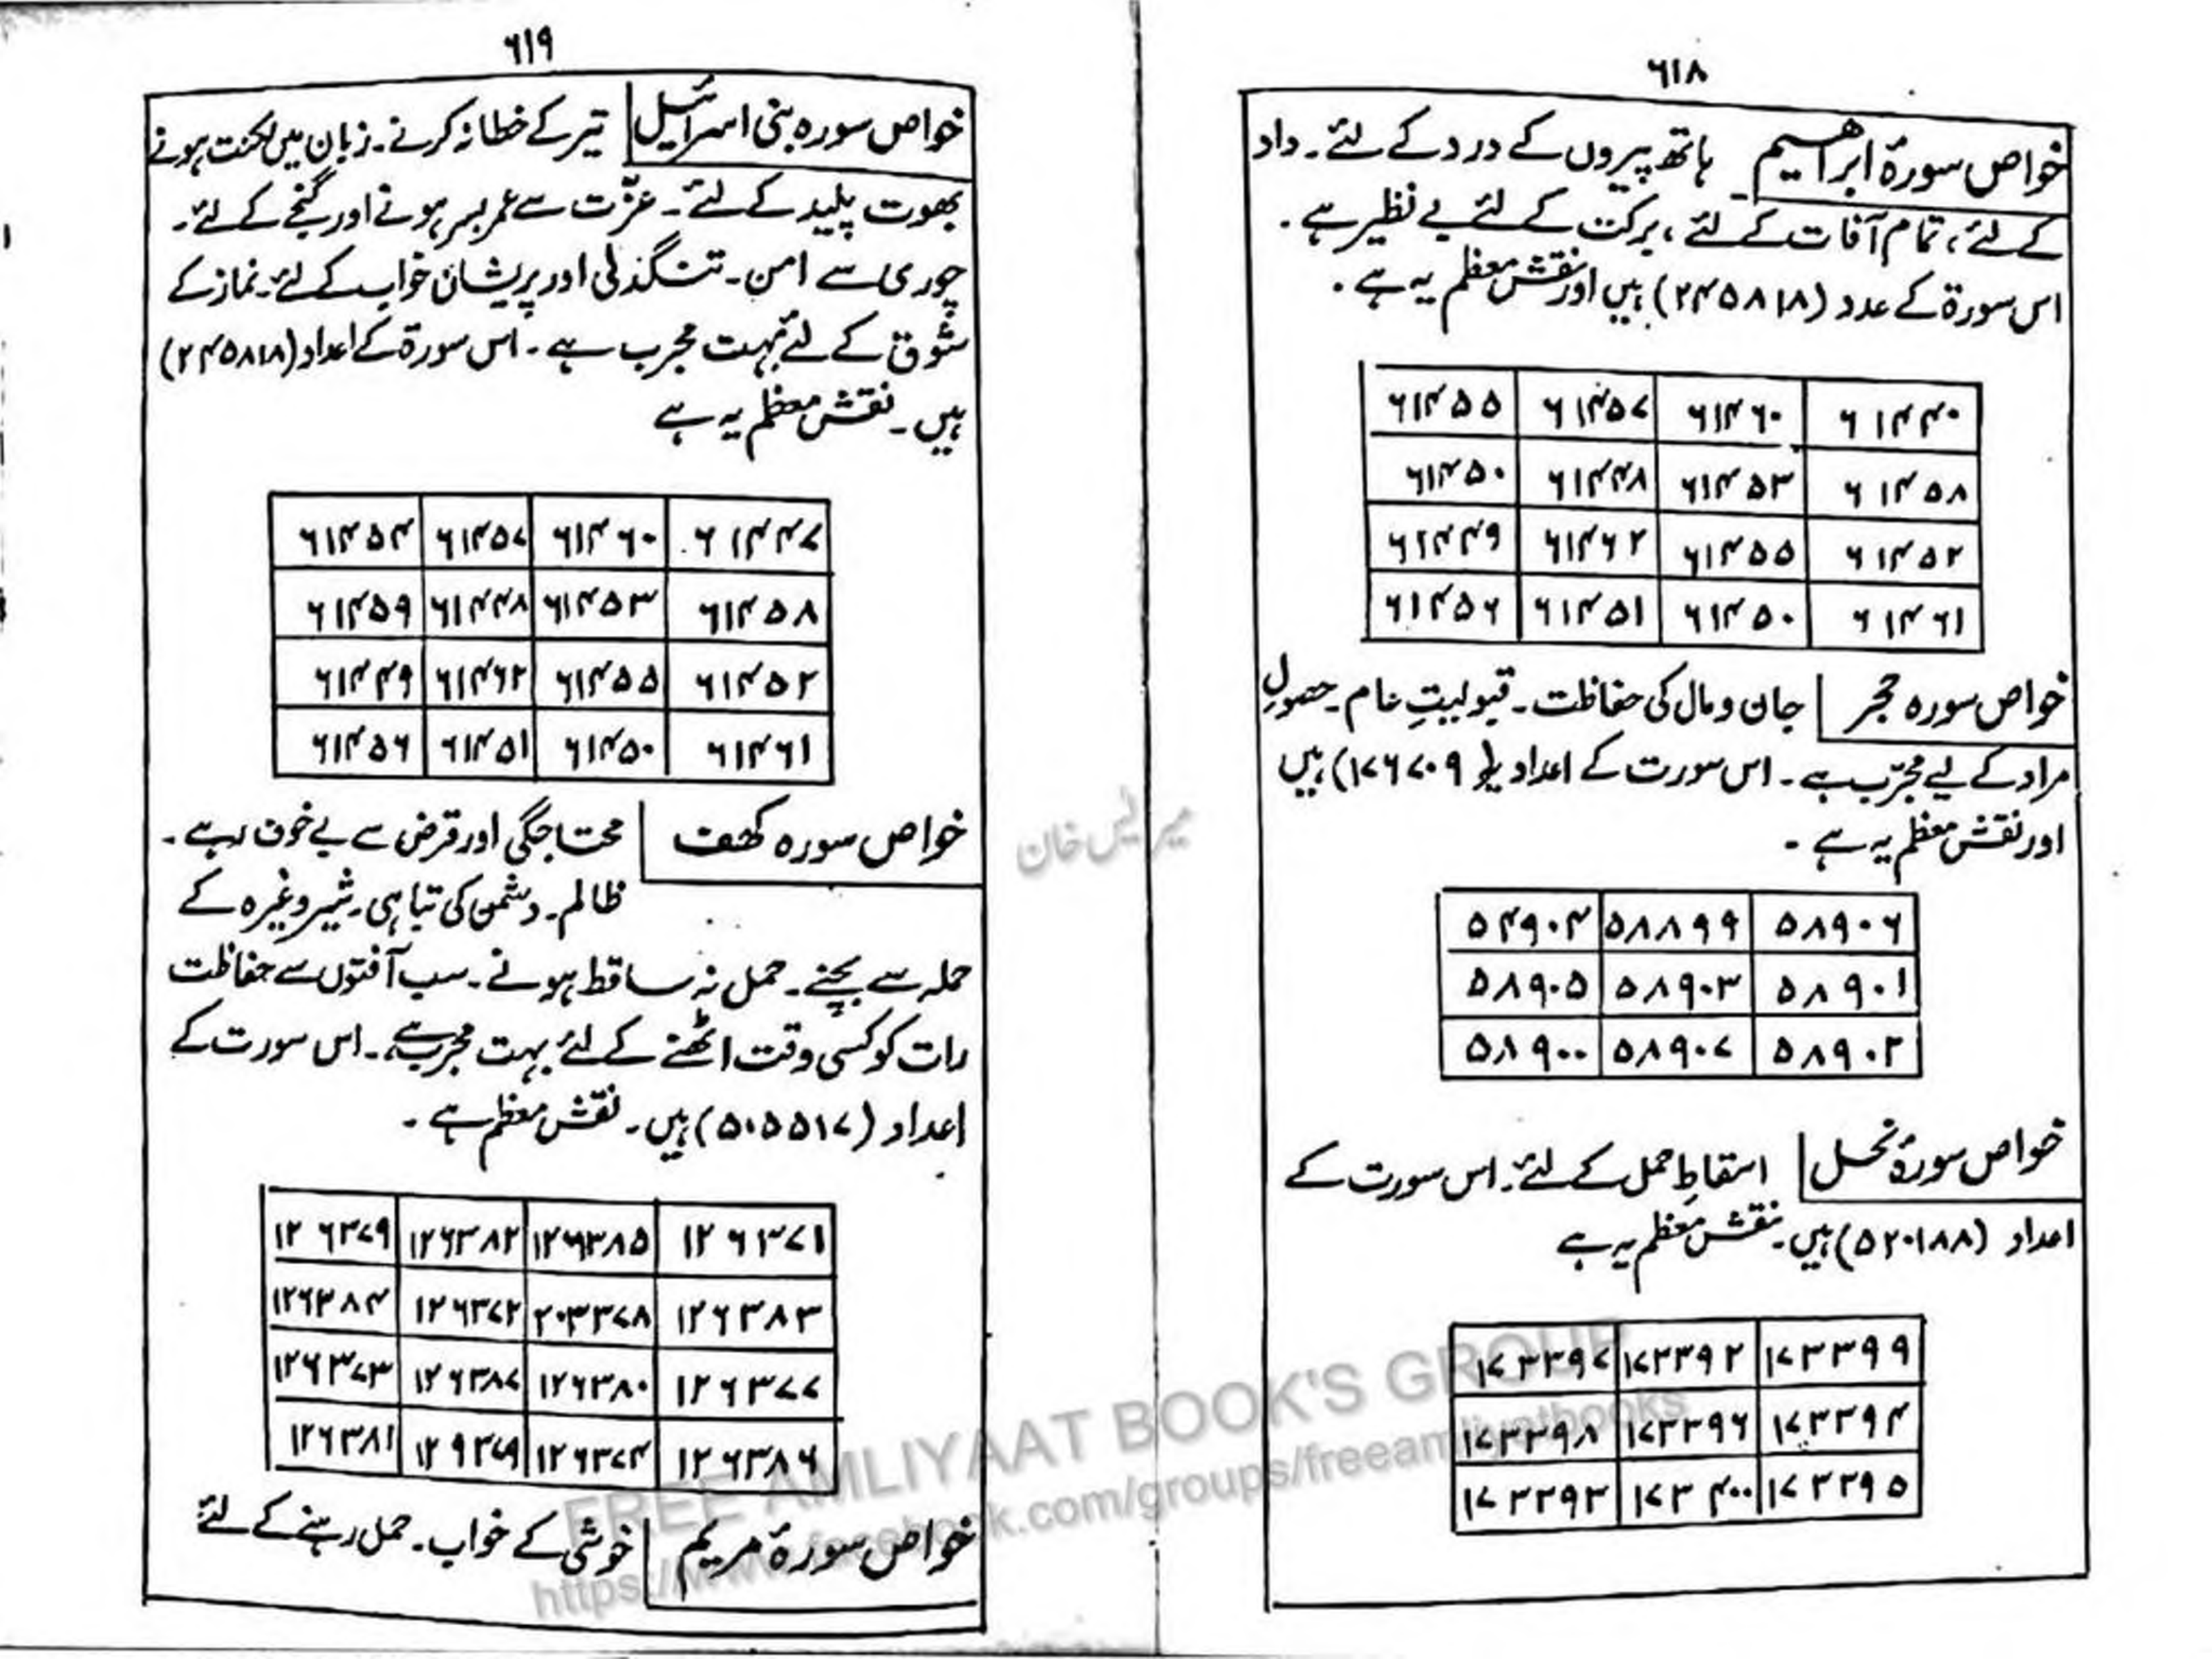 ۶۱۸
خواص سورۂ ابراھیم ہاتھ پیروں کے درد کے لئے۔ داد
کے لئے، تمام آفات کے لئے، برکت کے لئے بے نظیر ہے۔
اس سورۃ کے عدد (۲۴۵۸۱۸) ہیں اور نقش معظم یہ ہے۔
۶۱۴۴۰ ۶۱۴۶۰ ۶۱۴۵۷ ۶۱۴۵۵
۶۱۴۵۸ ۶۱۴۵۳ ۶۱۴۴۸ ۶۱۴۵۰
۶۱۴۵۲ ۶۱۴۵۵ ۶۱۴۶۲ ۶۱۴۴۹
۶۱۴۶۱ ۶۱۴۵۰ ۶۱۴۵۱ ۶۱۴۵۶
خواص سورہ حجر جان و مال کی حفاظت۔ قبولیتِ عام۔ حصولِ
مراد کے لیے مجرّب ہے۔ اس سورت کے اعداد (۱۷۶۷۰۹) ہیں
اور نقش معظم یہ ہے۔
۵۸۹۰۶ ۵۸۸۹۹ ۵۴۹۰۴
۵۸۹۰۱ ۵۸۹۰۳ ۵۸۹۰۵
۵۸۹۰۲ ۵۸۹۰۷ ۵۸۹۰۰
خواص سورۂ نحل اسقاطِ حمل کے لئے۔ اس سورت کے
اعداد (۵۲۰۱۸۸) ہیں۔ نقش معظم یہ ہے
۱۷۳۳۹۹ ۱۷۳۳۹۲ ۱۷۳۳۹۷
۱۷۳۳۹۴ ۱۷۳۳۹۶ ۱۷۳۳۹۸
۱۷۳۳۹۵ ۱۷۳۴۰۰ ۱۷۳۳۹۳
۶۱۹
خواص سورہ بنی اسرائیل تیر کے خطا نہ کرنے۔ زبان میں لکنت ہونے
بھوت پلید کے لئے۔ عزّت سے عمر بسر ہونے اور گنجے کے لئے۔
چوری سے امن۔ تنگدلی اور پریشان خواب کے لئے۔ نماز کے
شوق کے لئے بہت مجرب ہے۔ اس سورۃ کے اعداد (۲۴۵۸۱۸)
ہیں۔ نقش معظم یہ ہے
۶۱۴۴۷ ۶۱۴۶۰ ۶۱۴۵۷ ۶۱۴۵۴
۶۱۴۵۸ ۶۱۴۵۳ ۶۱۴۴۸ ۶۱۴۵۹
۶۱۴۵۲ ۶۱۴۵۵ ۶۱۴۶۲ ۶۱۴۴۹
۶۱۴۶۱ ۶۱۴۵۰ ۶۱۴۵۱ ۶۱۴۵۶
خواص سورہ کھف محتاجگی اور قرض سے بے خوف رہے۔
ظالم۔ دشمن کی تباہی۔ شیر وغیرہ کے
حملہ سے بچنے۔ حمل نہ ساقط ہونے۔ سب آفتوں سے حفاظت
رات کو کسی وقت اٹھنے کے لئے بہت مجرب ہے۔ اس سورت کے
اعداد (۵۰۵۵۱۷) ہیں۔ نقش معظم ہے۔
۱۲۶۳۷۱ ۱۲۶۳۸۵ ۱۲۶۳۸۲ ۱۲۶۳۷۹
۱۲۶۳۸۳ ۲۰۳۳۷۸ ۱۲۶۳۷۲ ۱۲۶۳۸۴
۱۲۶۳۷۷ ۱۲۶۳۸۰ ۱۲۶۳۸۷ ۱۲۶۳۷۳
۱۲۶۳۸۶ ۱۲۶۳۷۴ ۱۲۹۳۷۹ ۱۲۶۳۸۱
خواص سورۂ مریم خوشی کے خواب۔ حمل رہنے کے لئے
FREE AMLIYAAT BOOK'S GROUP
https://www.facebook.com/groups/freeamliyatbooks